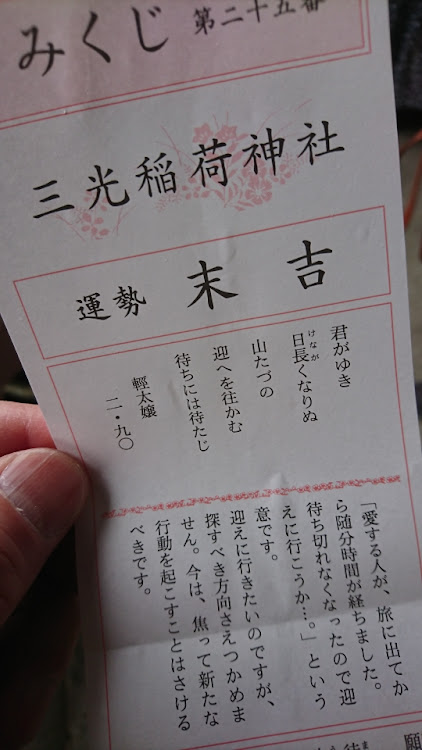 みくじ 第二十五番
三光稲荷神社
運勢 末吉
君がゆき
日長くなりぬ
けなが
山たづの
迎へを往かむ
待ちには待たじ
輕太嬢
二・九〇
「愛する人が、旅に出てか
ら随分時間が経ちました。
待ち切れなくなったので迎
えに行こうか…。」という
意です。
迎えに行きたいのですが、
探すべき方向さえつかめま
せん。今は、焦って新たな
行動を起こすことはさける
べきです。
願